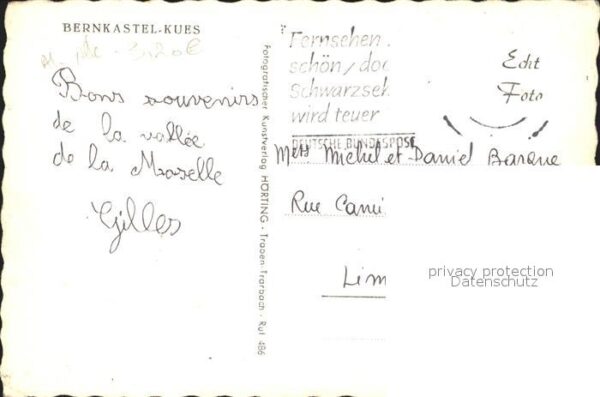 BERNKASTEL-KUES
Bons souvenirs
de la vallée
de la Moselle
Gilles
Fotografischer Kunstverlag HÖRTING · Traben Trarbach · Ruf 486
Fernsehen
schön, doc
Schwarzseh
wird teuer
DEUTSCHE BUNDESPOST
Echt
Foto
Michel et Daniel Barque
Rue Cami
Lim
privacy protection
Datenschutz